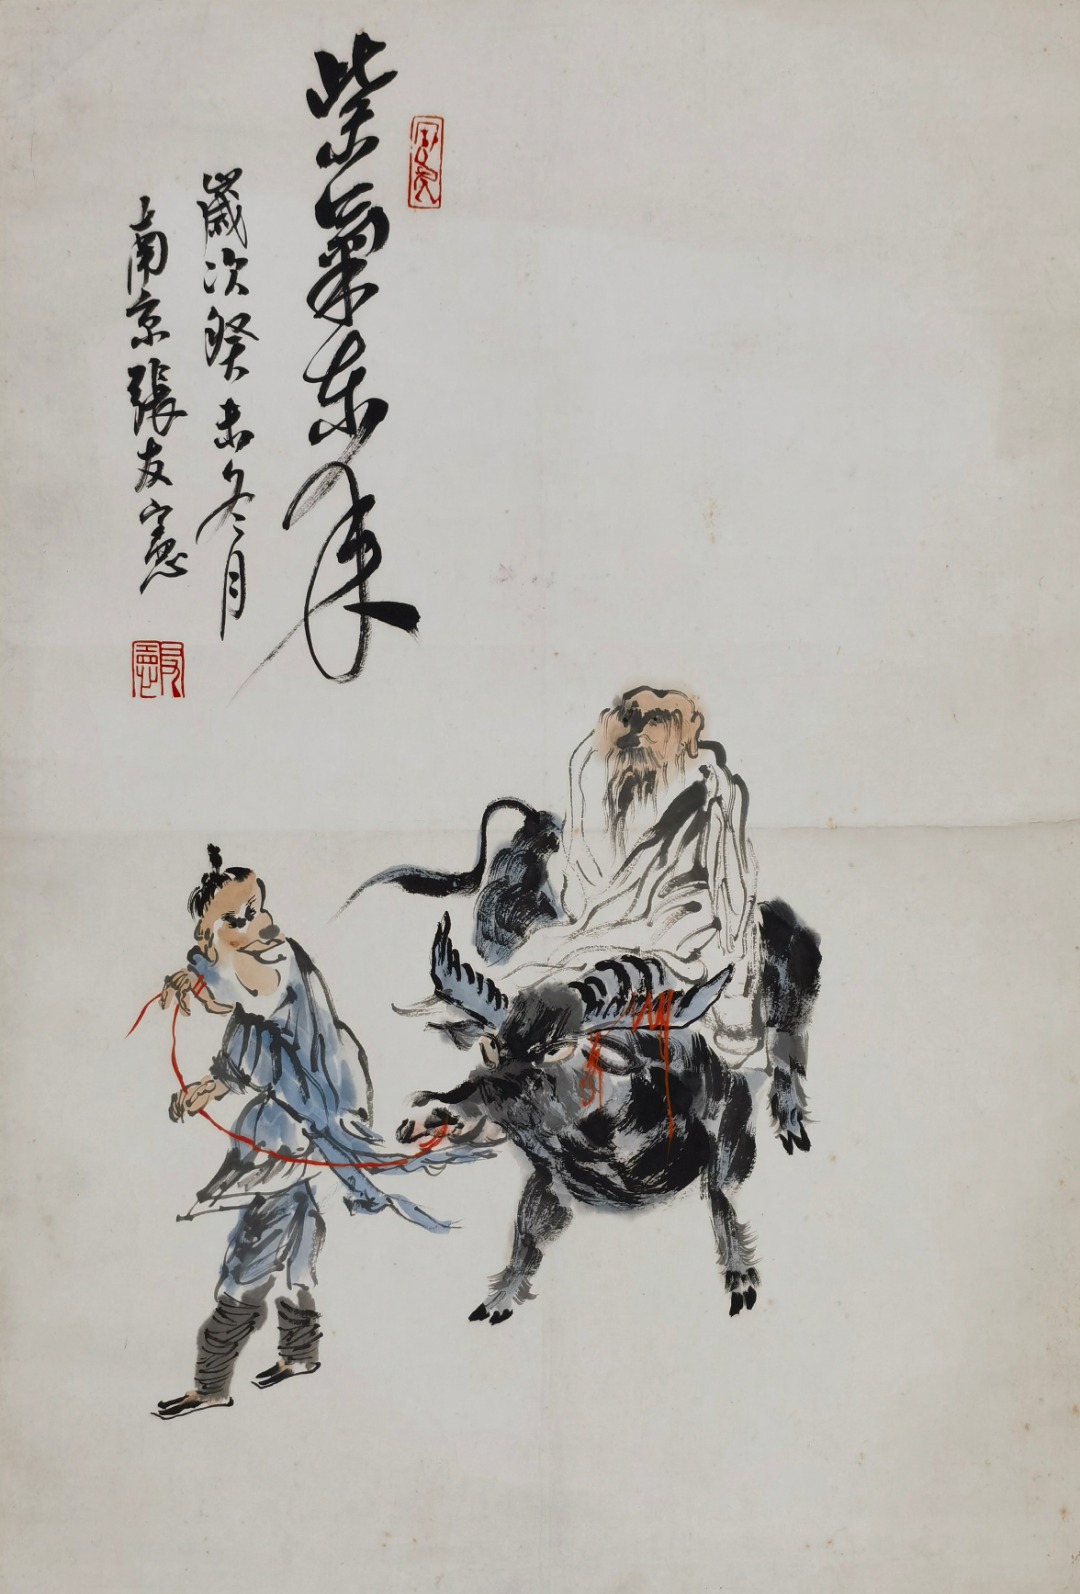 紫氣東來
歲次癸未冬月
南京張友憲
友憲